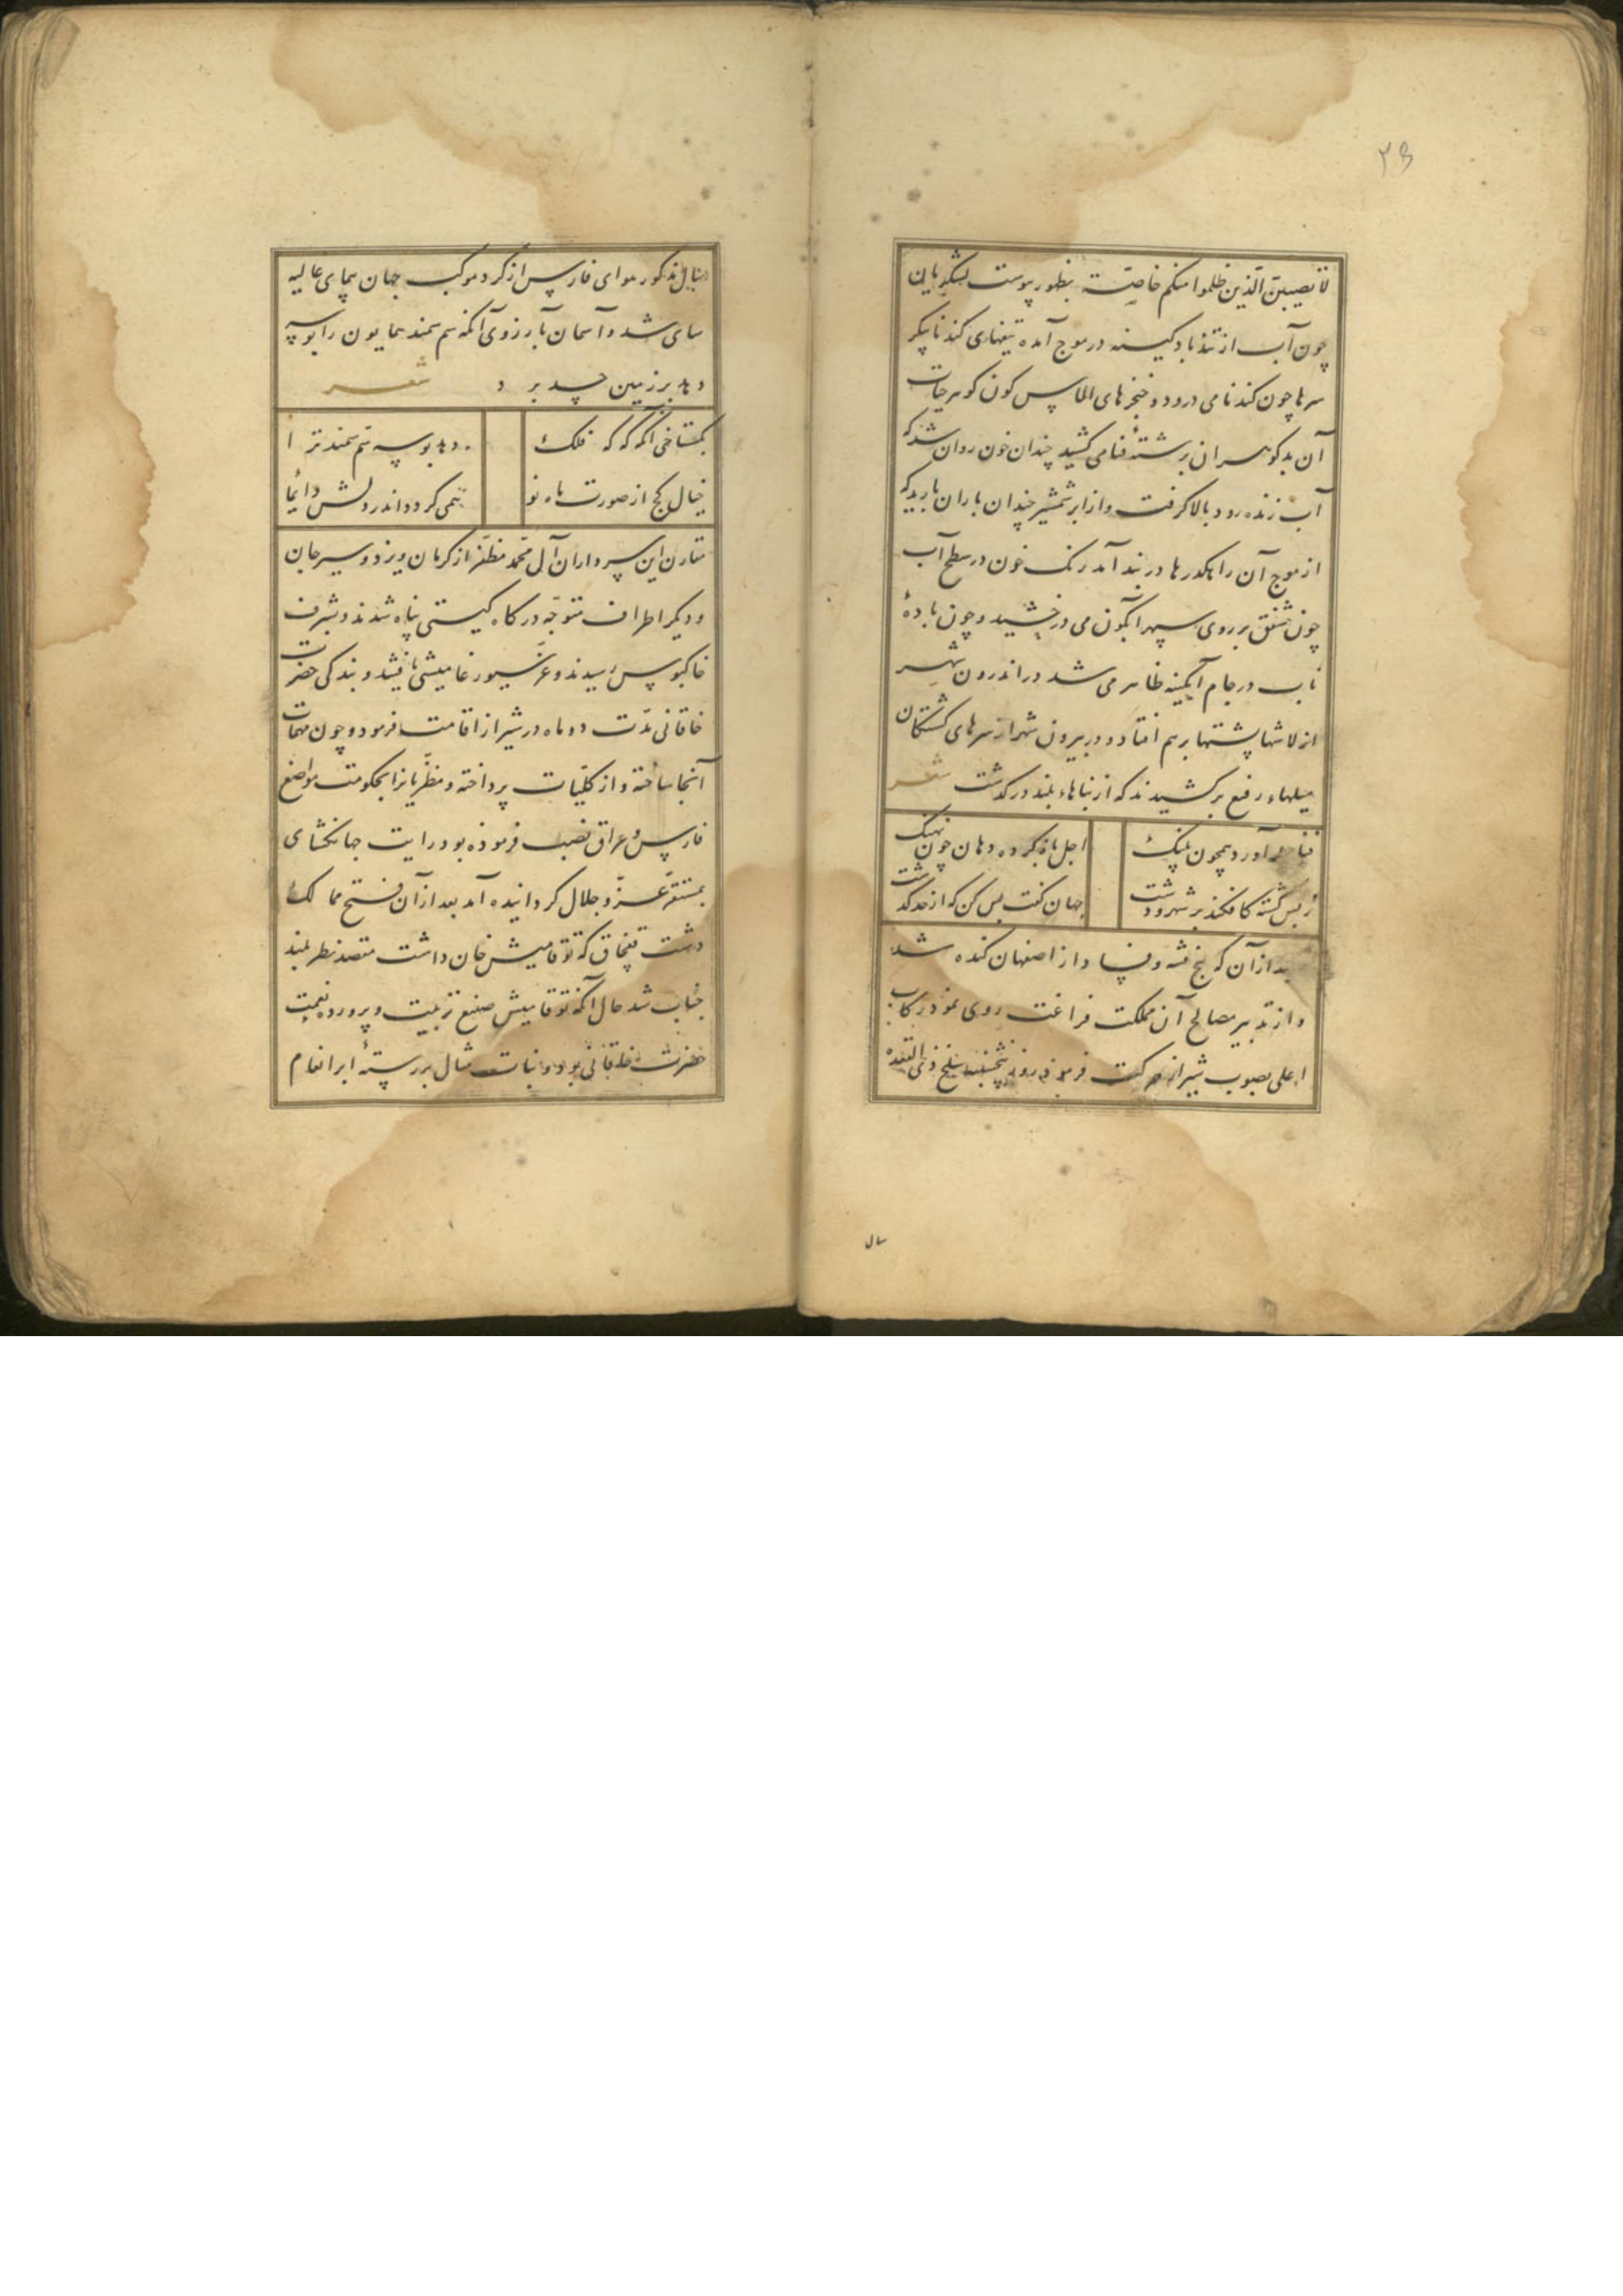 ۲۵
لا تصیبنّ الّذین ظلموا منکم خاصّة بظهور پیوست لشکریان
چون آب از تند باد کینه در موج آمده تیغهای کندنا پیکر
سرها چون کندنا می درود و خنجرهای الماس کون کوهر حیات
آن بد کوهران بر شتهٔ فنا می کشید چندان خون روان شد که
آب زنده رود بالا کرفت و از ابر شمشیر چندان باران بارید که
از موج آن راهکذرها در بند آمد رنک خون در سطح آب
چون شفق بر روی سپهر آبکون می درخشید و چون بادهٔ
ناب در جام آبکینه ظاهر می شد در اندرون شهر
از لاشها پشتها بر هم افتاد و در بیرون شهر از سرهای کشتکان
میلهاء رفیع بر کشیدند که از بناهاء بلند در کذشت شعر
فنا حمله آورد همچون پلنک اجل باز کرده دهان چون نهنک
ز بس کشته کافکند بر شهر و دشت جهان کفت بس کن که از حد کذشت
بعد از آن که بیخ فتنه و فساد از اصفهان کنده شد
و از تدبیر مصالح آن مملکت فراغت روی نمود رکاب
اعلی بصوب شیراز حرکت فرمود روز پنجشنبه سلخ ذی القعده
سال
سال مذکور هوای فارس از کرد موکب جهان پیمای عالیه
سای شد و آسمان بآرزوی آنکه سم سمند همایون را بوسه
دهد بر زمین حسد برد شعر
بکستاخی آنکه که که فلک دهد بوسه سم سمند ترا
خیال کج از صورت ماه نو همی کردد اندر دلش دائما
مقارن این سرداران آل محمّد مظفّر از کرمان و یزد و سیرجان
و دیکر اطراف متوجّه درکاه کیتی پناه شدند و بشرف
خاکبوس رسیدند و عزّ سیورغامیشی یافتند و بندکی حضرت
خاقانی مدّت دو ماه در شیراز اقامت فرمود و چون مهمّات
آنجا ساخته و از کلّیات پرداخته و مظفّریانرا بحکومت مواضع
فارس و عراق نصب فرموذه بود رایت جهانکشای
بمستقرّ عزّ و جلال کردانیده آمد بعد از آن فتح ممالک
دشت قفچاق که توقامیش خان داشت مقصد نظر بلند
جناب شد حال آنکه توقامیش صنیع تربیت و پرورده نعمت
حضرت خاقانی بود و نبات مثال بر رستهٔ ابر انعام